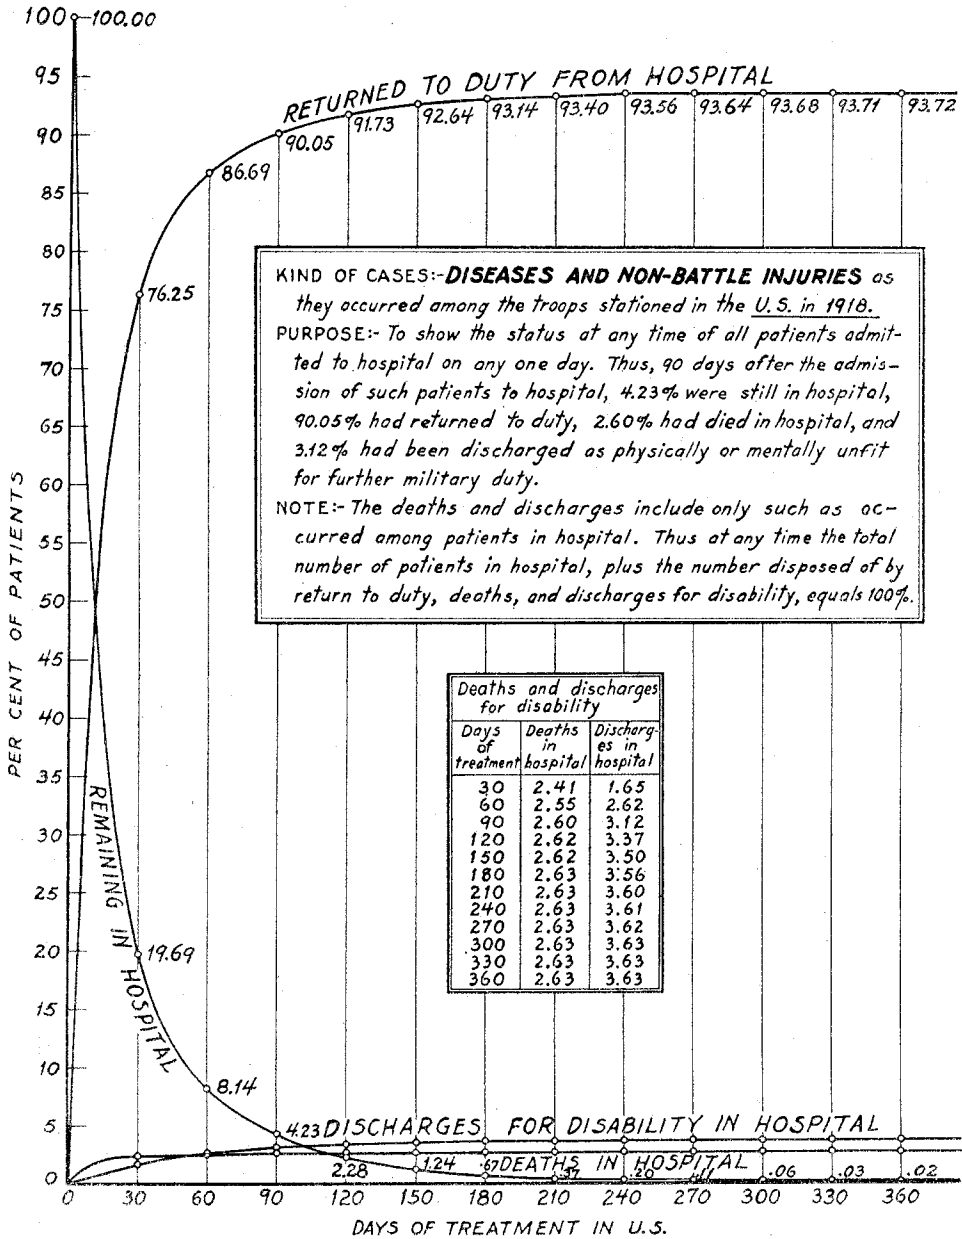 100
100.00
RETURNED TO DUTY FROM HOSPITAL
95
93.14 93.40 93.56 93.64 93.68 93.71 93.72
91.73 92.64
90
90.05
86.69
85
80
KIND OF CASES:- DISEASES AND NON-BATTLE INJURIES as
they occurred among the troops stationed in the U.S. in 1918.
PURPOSE:- To show the status at any time of all patients admit-
ted to hospital on any one day. Thus, 90 days after the admis-
sion of such patients to hospital, 4.23% were still in hospital,
90.05% had returned to duty, 2.60% had died in hospital, and
3.12% had been discharged as physically or mentally unfit
for further military duty.
NOTE:- The deaths and discharges include only such as oc-
curred among patients in hospital. Thus at any time the total
number of patients in hospital, plus the number disposed of by
return to duty, deaths, and discharges for disability, equals 100%.
76.25
75
70
65
60
55
50
45
40
35
30
25
20
15
10
5
0
PER CENT OF PATIENTS
Deaths and discharges
for disability
Days of treatment Deaths in hospital Discharg-es in hospital
30 2.41 1.65
60 2.55 2.62
90 2.60 3.12
120 2.62 3.37
150 2.62 3.50
180 2.63 3.56
210 2.63 3.60
240 2.63 3.61
270 2.63 3.62
300 2.63 3.63
330 2.63 3.63
360 2.63 3.63
REMAINING IN HOSPITAL
19.69
8.14
4.23 DISCHARGES FOR DISABILITY IN HOSPITAL
2.28 1.24 .67 DEATHS IN HOSPITAL
.37 .20 .11 .06 .03 .02
0 30 60 90 120 150 180 210 240 270 300 330 360
DAYS OF TREATMENT IN U.S.